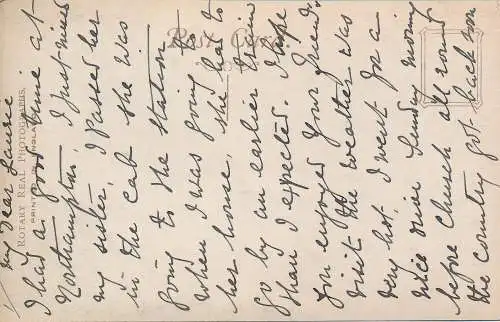 My dear Laurie
I had a good time at
Northampton. I just missed
my sister, I passed her
in the cab she was
going to the station
when I was going to
her house, she had to
go by an earlier train
than I expected. I hope
you enjoyed your friend's
visit the weather was
very hot. I went for a
nice drive Sunday morning
before church all round
the country got back
Post Card
ROTARY REAL PHOTOGRAPHERS.
PRINTED IN ENGLAND